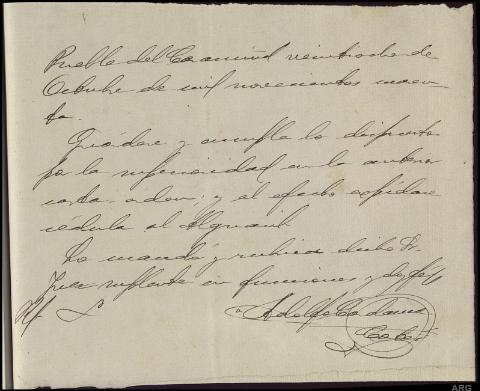 Puebla del Caramiñal veintiocho de
Octubre de mil novecientos
Guárdese y cumpla lo dispuesto
por la superioridad en la anterior
carta orden; y al efecto expídase
cédula al Alguacil
Lo mandó y rubrica dicho Sr.
Juez suplente en funciones y doy fe
Adolfo
ARG